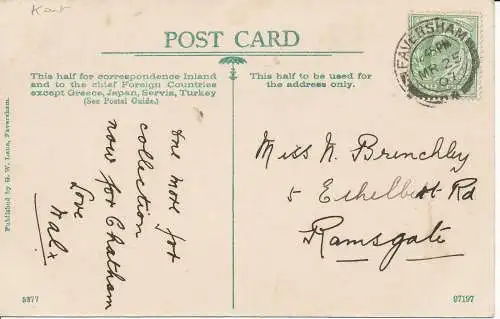 Kent
POST CARD
This half for correspondence Inland
and to the chief Foreign Countries
except Greece, Japan, Servia, Turkey
(See Postal Guide.)
This half to be used for
the address only.
FAVERSHAM
MR 25
07
One more for
collection
now for Chatham
Love
Mal x
Miss N. Brenchley
5 Ethelbert Rd
Ramsgate
Published by G. W. Lane, Faversham.
5877
07197